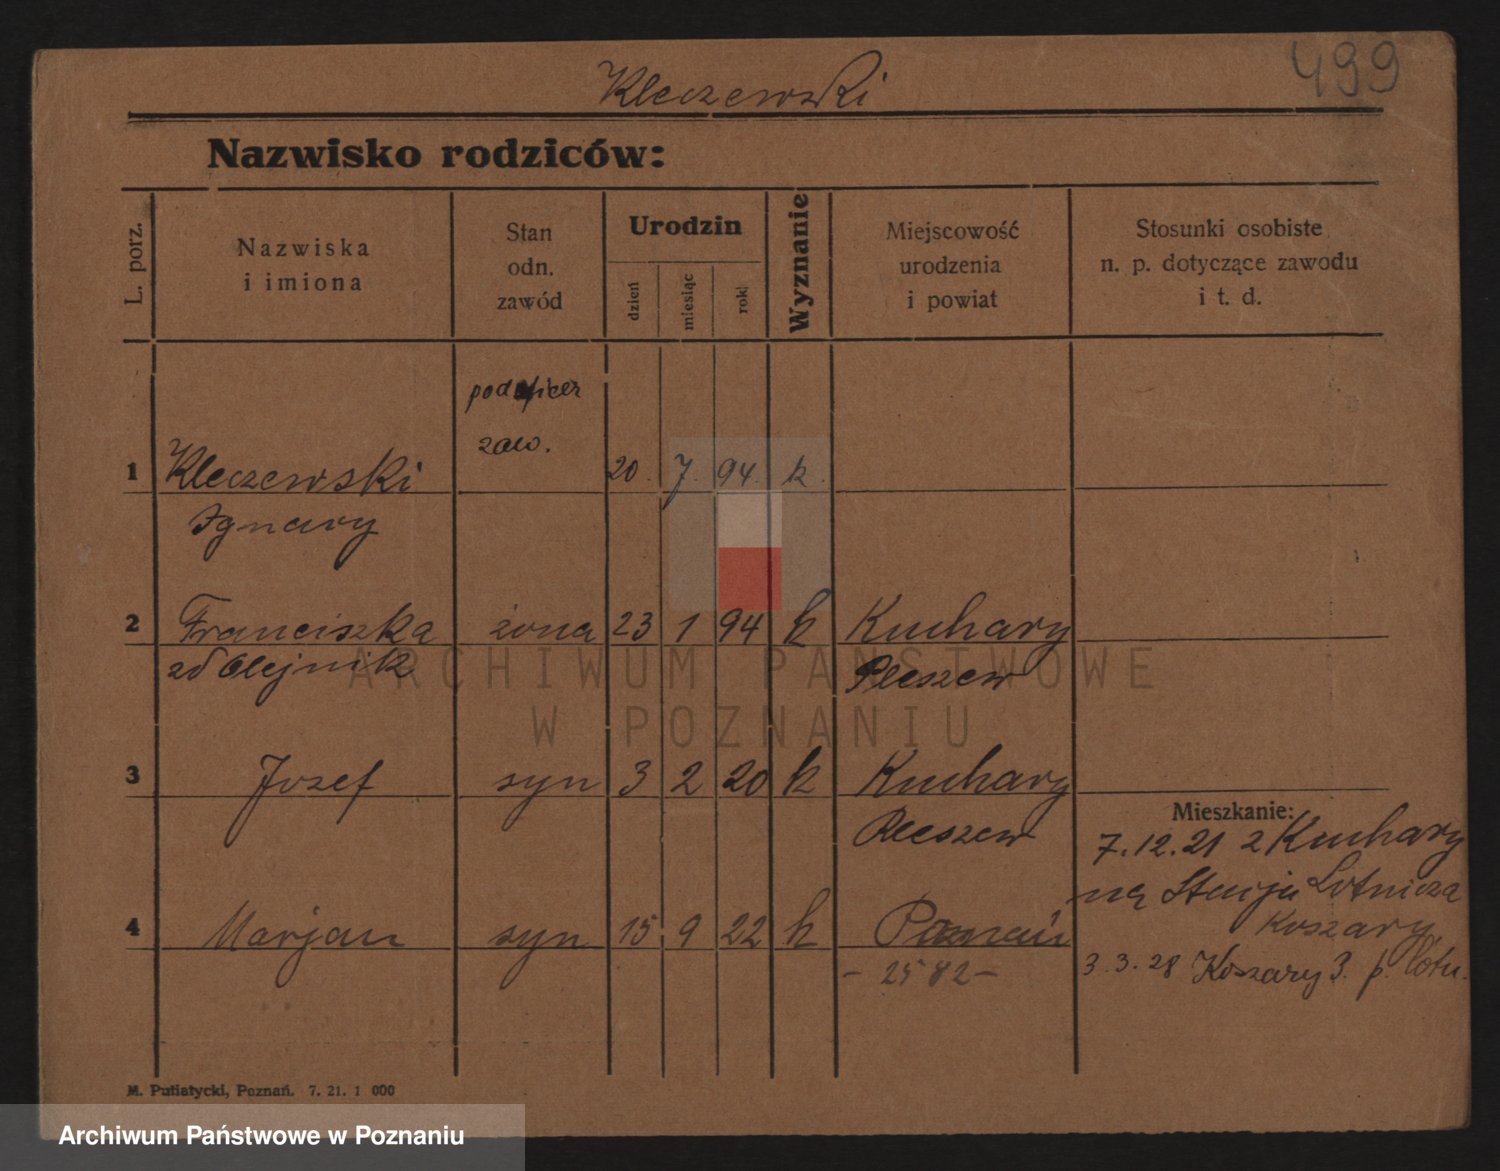 Kleczewski
499
Nazwisko rodziców:
L. porz.
Nazwiska
i imiona
Stan
odn.
zawód
Urodzin
dzień
miesiąc
rok
Wyznanie
Miejscowość
urodzenia
i powiat
Stosunki osobiste
n. p. dotyczące zawodu
i t. d.
podoficer
zaw.
1 Kleczewski 20. 7. 94. k.
Ignacy
2 Franciszka żona 23 1 94 k Kuchary
zd Olejnik Pleszew
ARCHIWUM PAŃSTWOWE
W POZNANIU
3 Jozef syn 3 2 20 k Kuchary
Pleszew
Mieszkanie:
7.12.21 z Kuchary
na Stacja Lotnicza
Koszary
4 Marjan syn 15 9 22 k Poznań
- 2582 -
3.3.28 Koszary 3. p. lotn.
M. Putiatycki, Poznań. 7. 21. 1 000
Archiwum Państwowe w Poznaniu